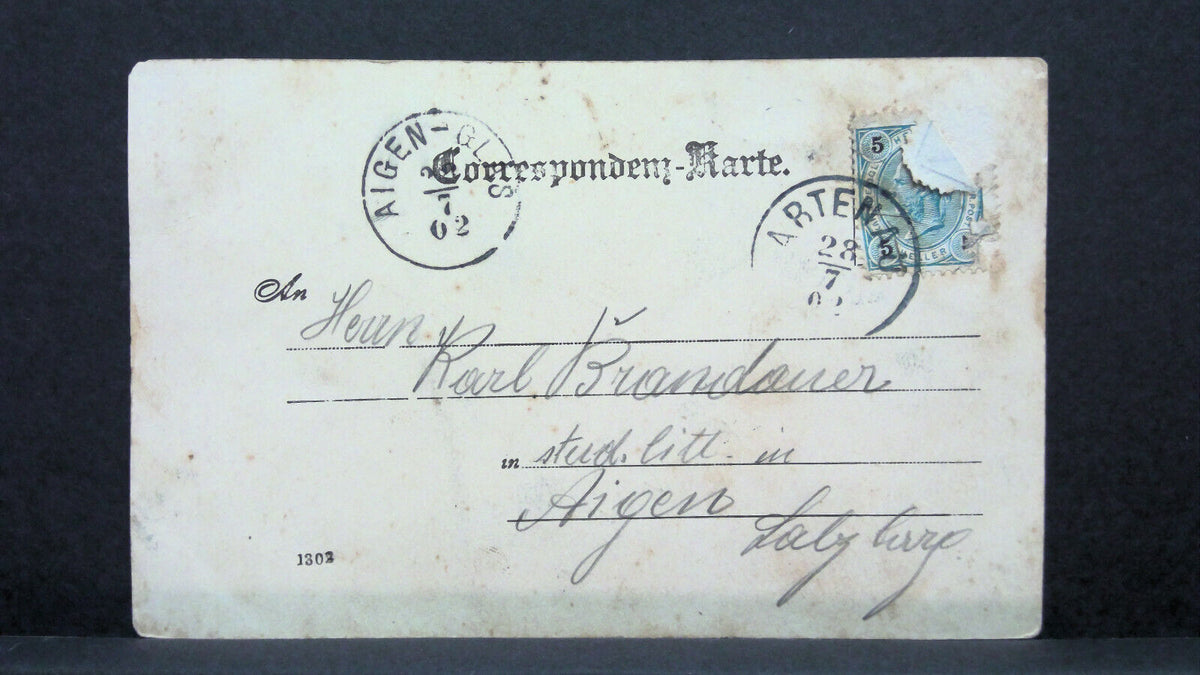 AIGEN-GL S
2
7
02
Correspondenz-Karte.
5
5
ARTENAU
28
7
An
Herrn
Karl Brandauer
in stud. litt. in
Aigen
Salzburg.
1302